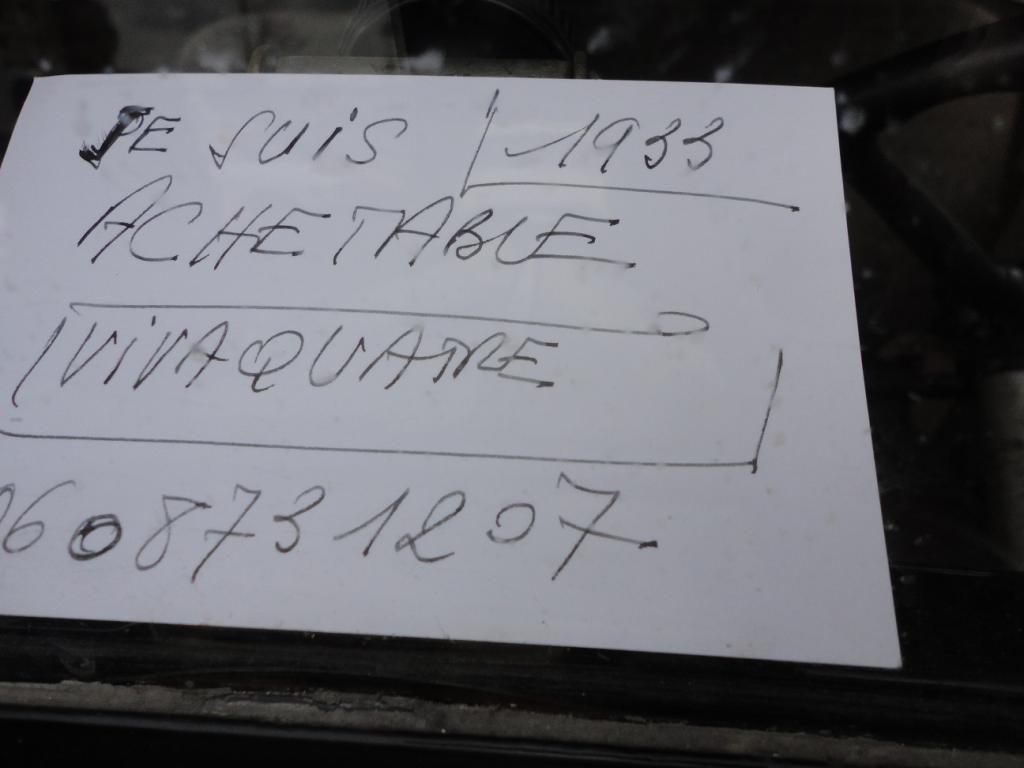 JE SUIS 1933
ACHETABLE
VIVAQUATRE
0608731207